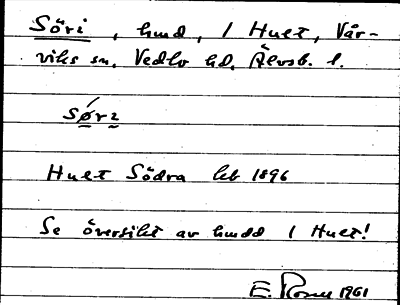 Söri, hmd, 1 Hult, Vår-
viks sn. Vedbo hd. Älvsb. l.
sø´rı
Hult Södra lht 1896
Se översikt av hmdd 1 Hult!
E. Rosell 1961